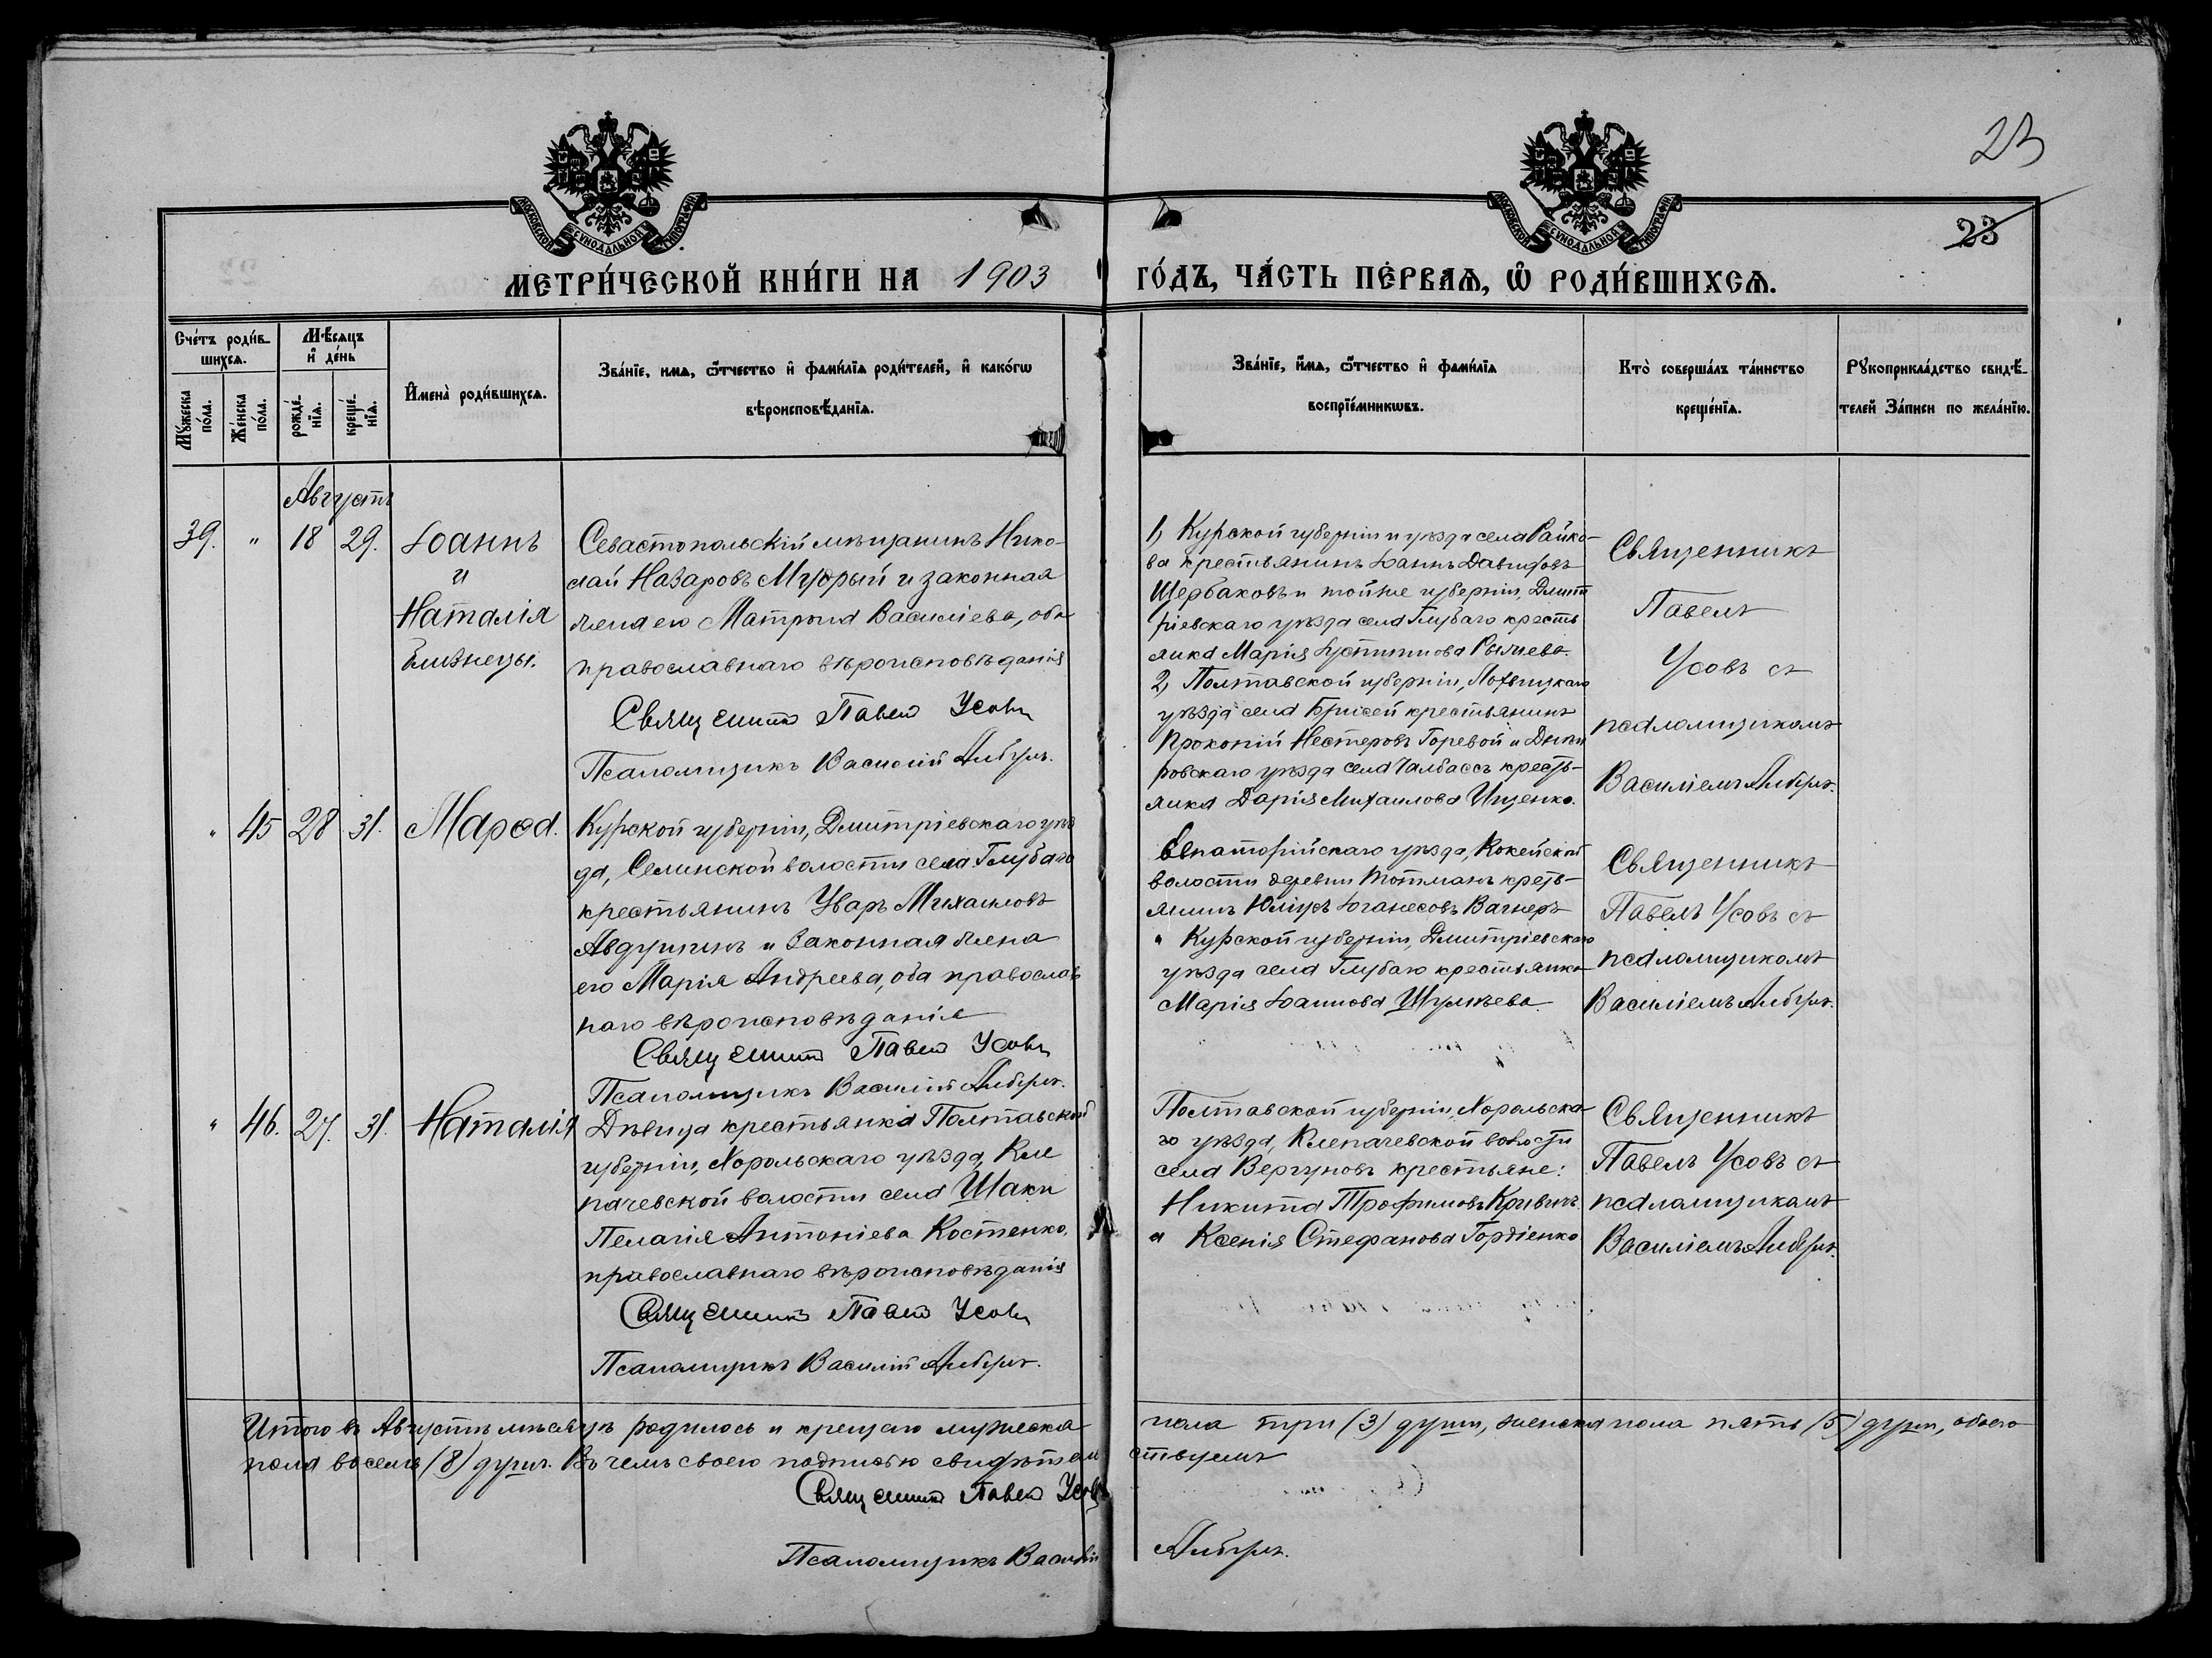 23
23
МОСКОВСКОЙ СѴНОДАЛЬНОЙ ТИПОГРАФІИ
МОСКОВСКОЙ СѴНОДАЛЬНОЙ ТИПОГРАФІИ
МЕТРИ́ЧЕСКОЙ КНИ́ГИ НА 1903 ГО́ДЪ, ЧА́СТЬ ПЕ́РВАѦ, Ѡ҆ РОДИ́ВШИХСѦ.
Сче́тъ роди́в-
шихсѧ.
Мꙋ́жеска по́ла.
Же́нска по́ла.
Мѣ́сѧцъ
и҆ де́нь
рожде́-
нїѧ.
креще́-
нїѧ.
И҆мена̀ роди́вшихсѧ.
Зва́нїе, имѧ, ѻ҆́тчество и҆ фами́лїѧ роди́телей, и҆ како́гѡ
вѣроисповѣ́данїѧ.
Зва́нїе, и҆́мѧ, ѻ҆́тчество и҆ фами́лїѧ
воспрїе́мникѡвъ.
Кто̀ соверша́лъ та́инство
креще́нїѧ.
Рꙋкоприкла́дство свидѣ́-
телей За́писи по жела́нїю.
Августъ
39. " 18 29. Іоаннъ
и
Наталія
близнецы.
Севастопольскій мѣщанинъ Нико-
лай Назаровъ Мудрый и законная
жена его Матрона Василіева, оба
православнаго вѣроисповѣданія
Священникъ Павелъ Усовъ
Псаломщикъ Василій
1, Курской губерніи и уѣзда села Райко-
ва крестьянинъ Іоаннъ Давидовъ
Щербаковъ и той же губерніи, Дмит
ріевскаго уѣзда села Глубаго кресть
янка Марія Іустинова Рычева.
2, Полтавской губерніи, Лохвицкаго
уѣзда села Брисей крестьянинъ
Прокопій Нестеровъ Горевой и Днѣп
ровскаго уѣзда села Чалбассъ кресть-
янка Дарія Михаилова Ищенко.
Священникъ
Павелъ
Усовъ съ
псаломщикомъ
Василіемъ
" 45 28 31. Марѳа.
Курской губерніи, Дмитріевскаго уѣз
да, Селинской волости села Глубаго
крестьянинъ Уваръ Михаиловъ
Авдушинъ и законная жена
его Марія Андреева, оба православ
наго вѣроисповѣданія
Священникъ Павелъ Усовъ
Псаломщикъ Василій
Евпаторійскаго уѣзда, Кокейской
волости деревни Тотманъ кресть-
янинъ Юліусъ Іоганесовъ Вагнеръ
и Курской губерніи, Дмитріевскаго
уѣзда села Глубаго крестьянка
Марія Іоаннова Шумѣева.
Священникъ
Павелъ Усовъ съ
псаломщикомъ
Василіемъ
" 46. 27. 31. Наталія
Дѣвица крестьянка Полтавской
губерніи, Хорольскаго уѣзда, Кле
пачевской волости села Шаки
Пелагія Антоніева Костенко,
православнаго вѣроисповѣданія
Священникъ Павелъ Усовъ
Псаломщикъ Василій
Полтавской губерніи, Хорольска-
го уѣзда, Клепачевской волости
села Вергуновъ крестьяне:
Никита Трофимовъ
и Ксенія Стефанова Гордіенко
Священникъ
Павелъ Усовъ съ
псаломщикомъ
Василіемъ
Итого въ Августѣ мѣсяцѣ родилось и крещено мужеска пола три (3) души, женска пола пять (5) душъ, обоего
пола восемь (8) душъ. Въ чемъ своею подписью свидѣтельствуемъ
Священникъ Павелъ Усовъ
Псаломщикъ Василій